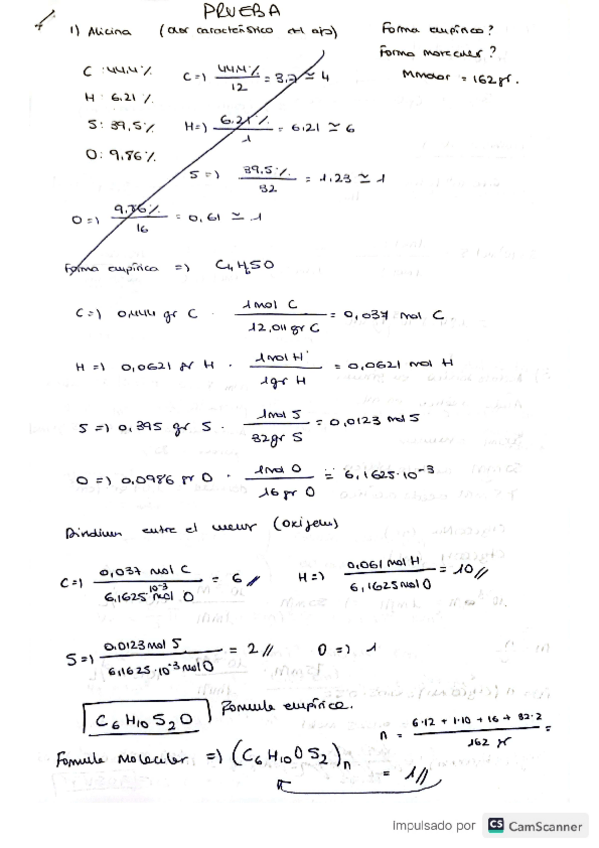 PRUEBA
1) Alicina (olor característico del ajo) Forma empírica?
Forma molecular?
Mmolar = 162 gr.
C : 44,4% C=) 44,4% / 12 = 3,7 ≃ 4
H : 6.21 %. H=) 6.21 % / 1 = 6,21 ≃ 6
S : 39,5% S=) 39.5% / 32 = 1.23 ≃ 1
O : 9,86% O=) 9,86% / 16 = 0,61 ≃ 1
Forma empírica =) C4H6SO
C=) 0,444 gr C · 1 mol C / 12,011 gr C = 0,037 mol C
H=) 0,0621 gr H · 1 mol H / 1 gr H = 0,0621 mol H
S=) 0,395 gr S · 1 mol S / 32 gr S = 0,0123 mol S
O=) 0,0986 gr O · 1 mol O / 16 gr O = 6,1625·10⁻³
entre el menor (oxígeno)
C=) 0,037 mol C / 6,1625·10⁻³ mol O = 6 // H=) 0,061 mol H / 6,1625 mol O = 10 //
S=) 0,0123 mol S / 6,1625·10⁻³ mol O = 2 // O=) 1
C6H10S2O Formula empírica.
n = 6·12 + 1·10 + 16 + 32·2 / 162 gr =
Formula molecular =) (C6H10OS2)n = 1 //
Impulsado por CS CamScanner